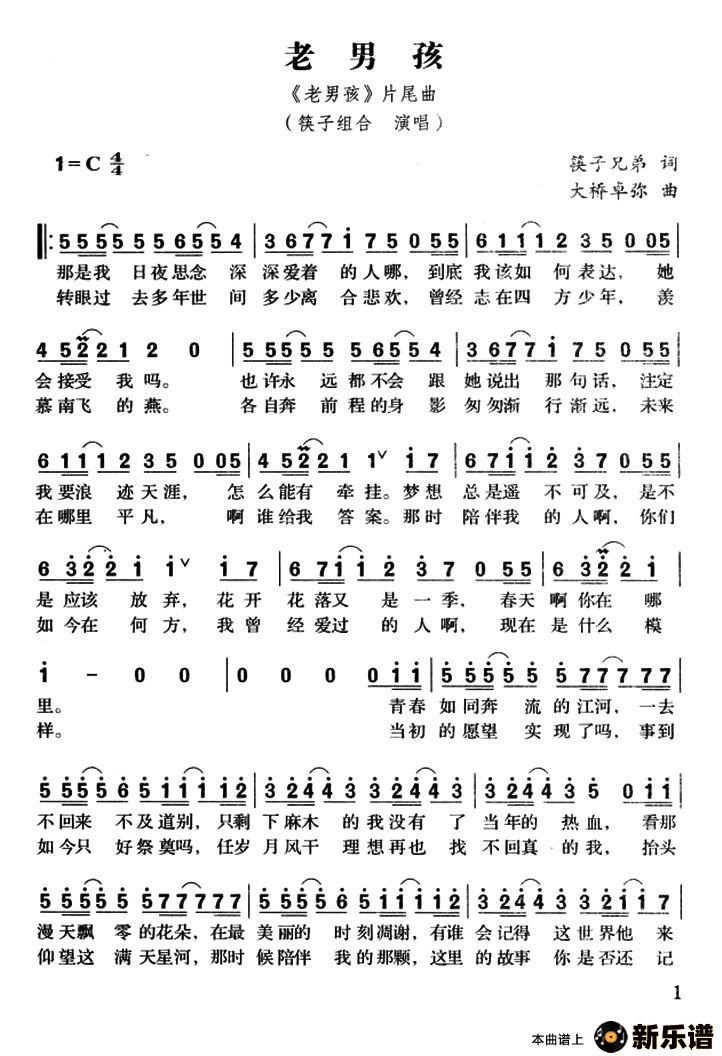 老男孩
《老男孩》片尾曲
（筷子组合 演唱）
1=C 4/4
筷子兄弟 词
大桥卓弥 曲
5555 5565 54 | 36771 75 055 | 61112 35 005 |
那是我 日夜思念 深 深爱着 的人哪，到底 我该如 何表达， 她
转眼过 去多年世 间 多少离 合悲欢，曾经 志在四 方少年， 羡
452221 2 0 | 5555 5 5654 | 36771 75 055 |
会接受 我吗。 也许永 远都不会 跟 她说出 那句话，注定
慕南飞 的燕。 各自奔 前程的身 影 匆匆渐 行渐远，未来
61112 35 005 | 452221 1∨ 17 | 67112 37 055 |
我要浪 迹天涯， 怎 么能有 牵挂。梦想 总是遥 不可及，是不
在哪里 平凡， 啊 谁给我 答案。那时 陪伴我 的人啊，你们
632221 1∨ 17 | 67112 37 055 | 632221
是应该 放弃， 花开 花落又 是一季， 春天 啊你在 哪
如今在 何方， 我曾 经爱过 的人啊， 现在 是什么 模
1 - 0 0 | 0 0 0 011 | 5555 5 577777
里。 青春 如同奔 流的江河，一去
样。 当初 的愿望 实现了吗，事到
5555651111 12 | 3244 3 3244 3 | 3244 35 011
不回来 不及道别，只剩 下麻木 的我没有 了 当年的 热血，看那
如今只 好祭奠吗，任岁 月风干 理想再也 找 不回真 的我，抬头
5555 577777 | 5555651111 12 | 3244 3 3244 3
漫天飘 零的花朵，在最 美丽的 时刻凋谢，有谁 会记得 这世界他 来
仰望这 满天星河，那时 候陪伴 我的那颗，这里 的故事 你是否还 记
1
本曲谱上
新乐谱